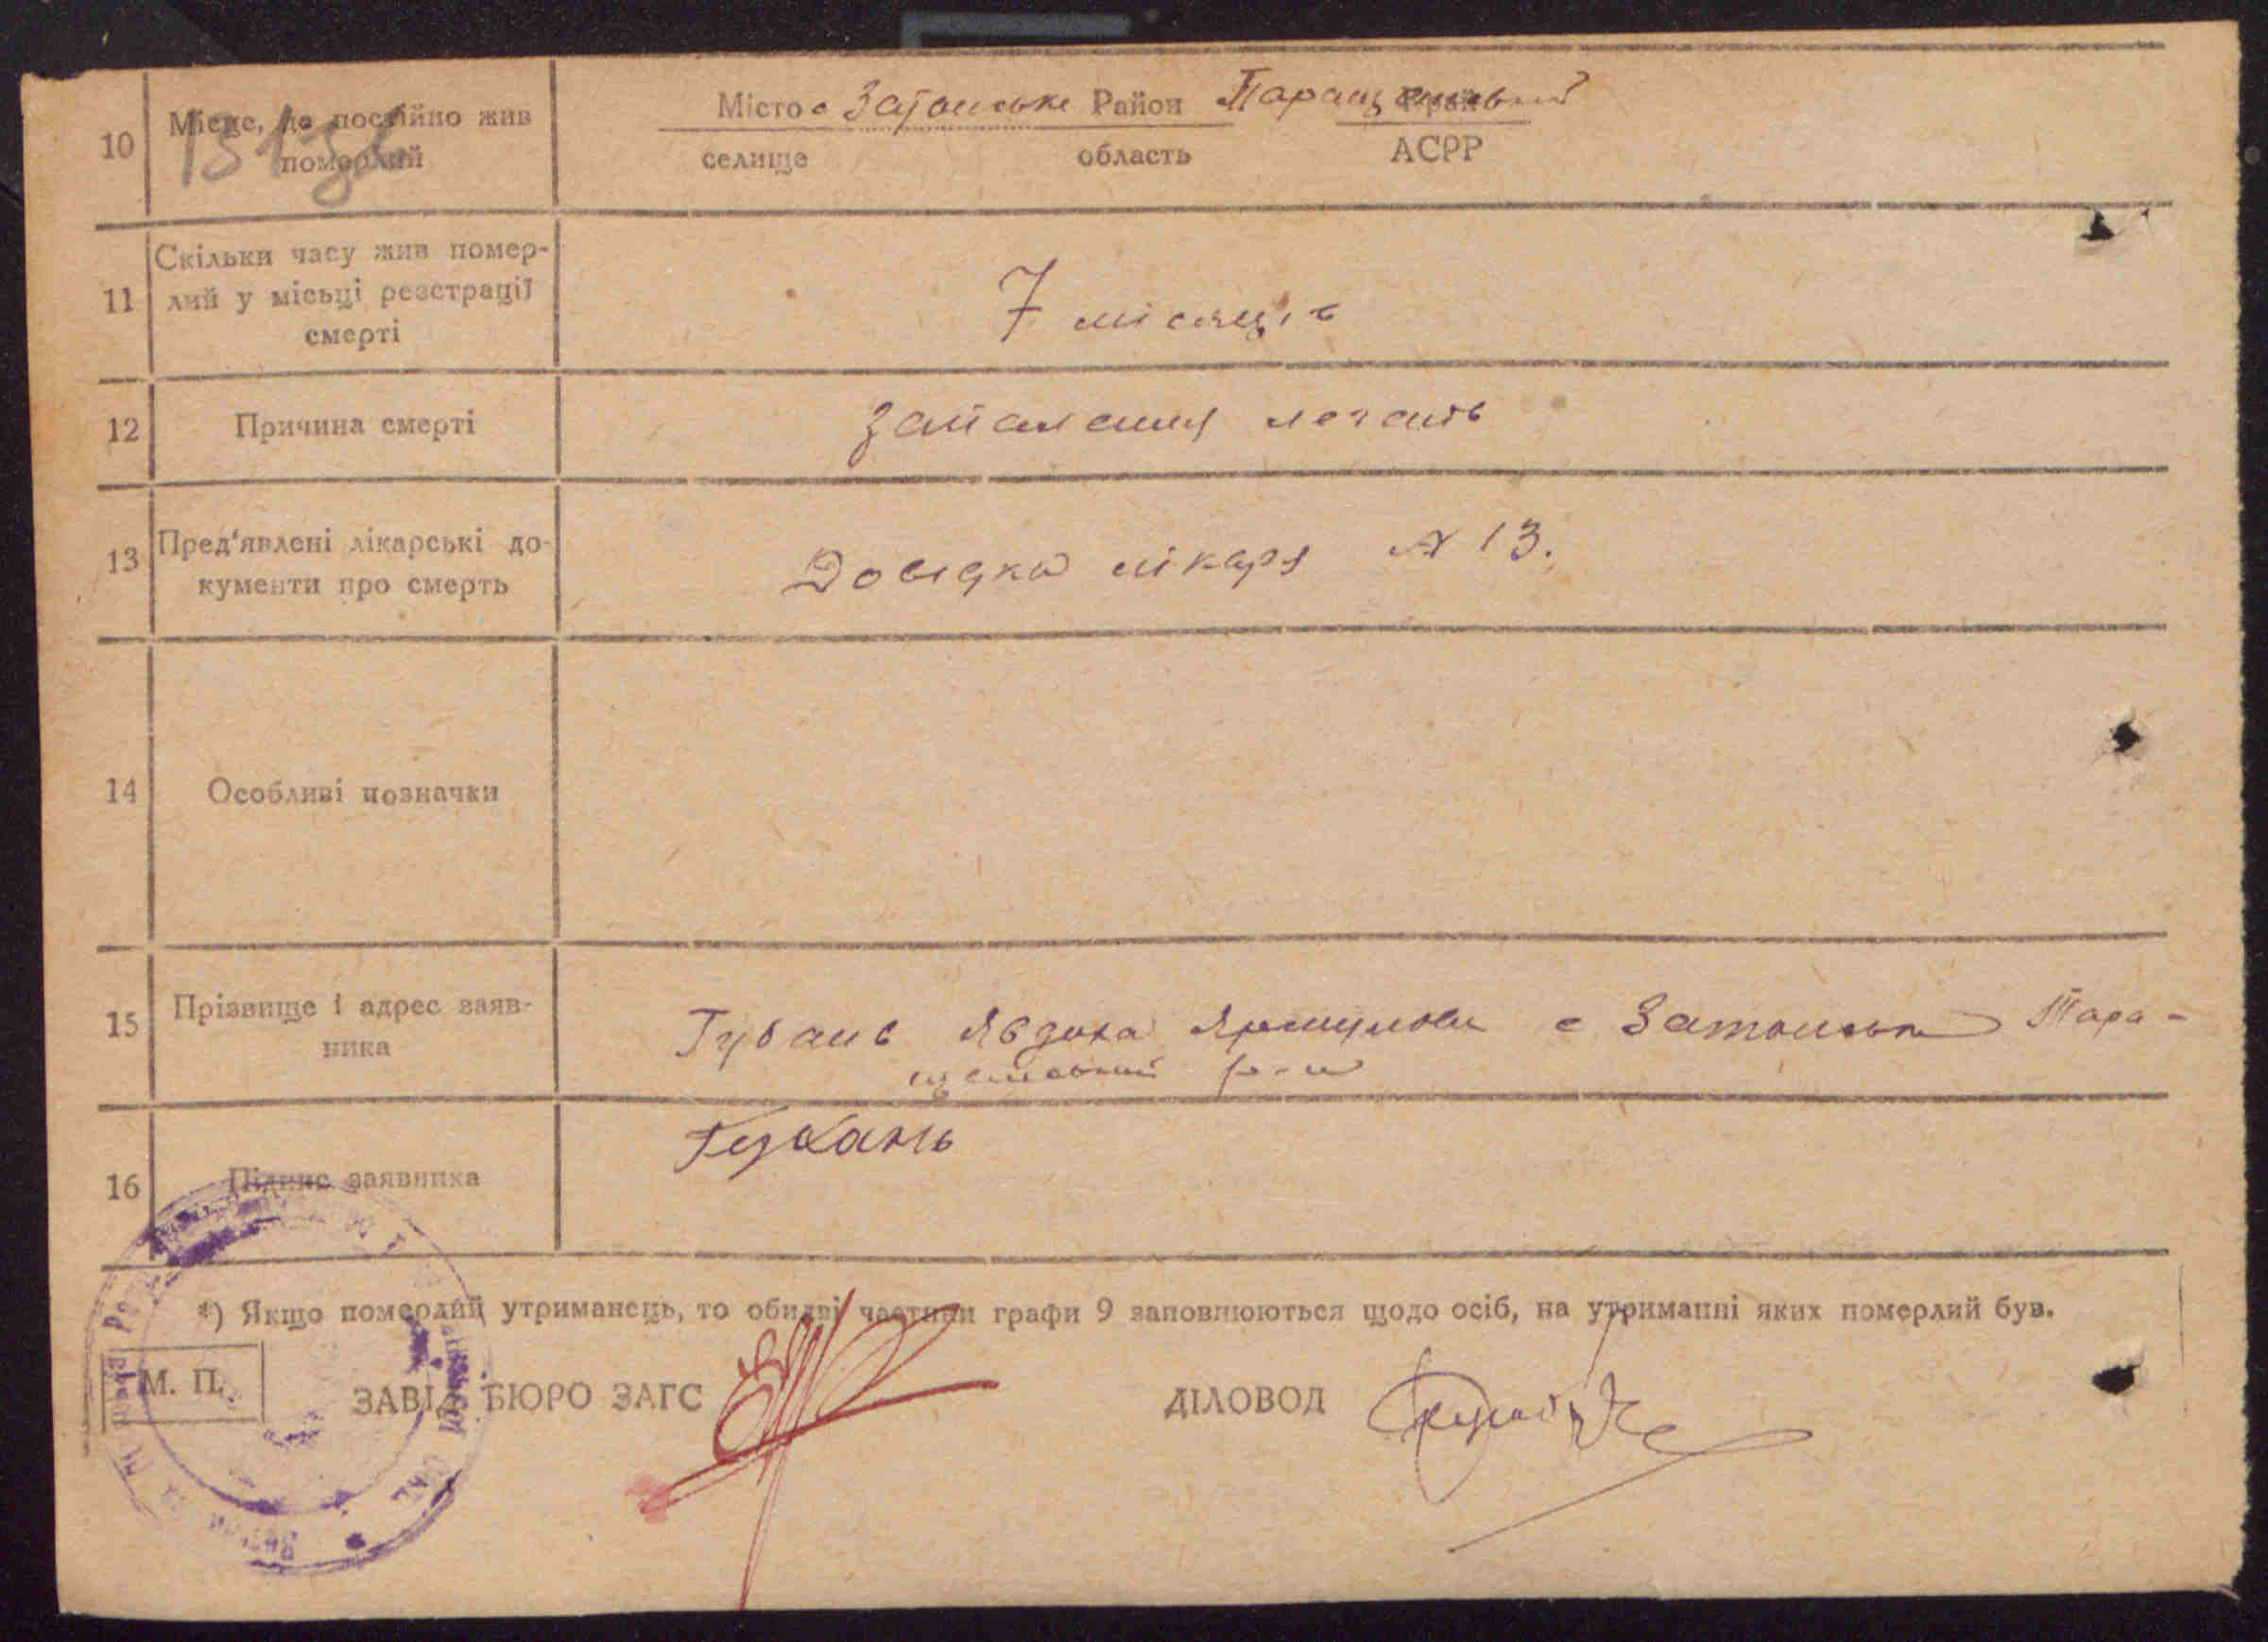 10 Місце, де постійно жив
померлий
Місто с Затонське Район Таращанський Край
селище область АСРР
11 Скільки часу жив помер-
лий у місьці реєстрації
смерті
7 місяців
12 Причина смерті
запалення легень
13 Пред'явлені лікарські до-
кументи про смерть
Довідка лікаря № 13.
14 Особливі позначки
15 Прізвище і адрес заяв-
ника
Губань Явдоха с Затонське Тара-
щанський р-н
16 Підпис заявника
Губань
*) Якщо померлий утриманець, то обидві частини графи 9 заповнюються щодо осіб, на утриманні яких померлий був.
М. П.
ЗАВІД. БЮРО ЗАГС
ДІЛОВОД